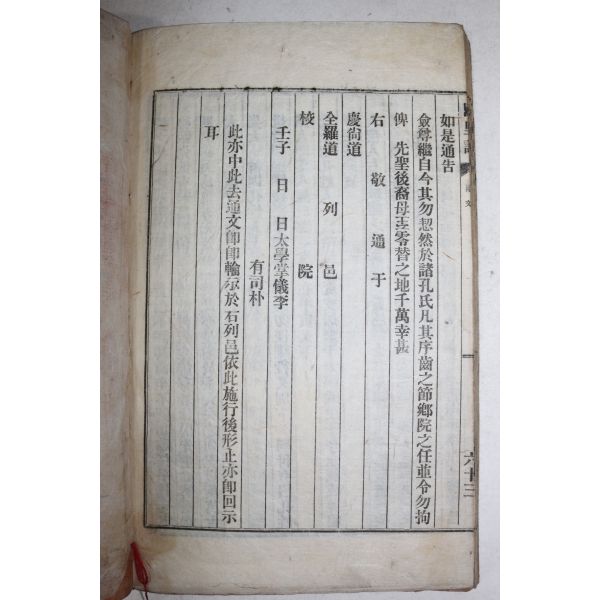 如是通告
僉尊繼自今其勿恝然於諸孔氏凡其序齒之節鄕院之任並令勿拘
俾 先聖後裔毋至零替之地千萬幸甚
右敬通于
慶尙道
全羅道 列邑
校院
壬子 日 日太學掌儀李
有司朴
此亦中此去通文卽卽輪示於右列邑依此施行後形止亦卽回示
耳
通文
六十三